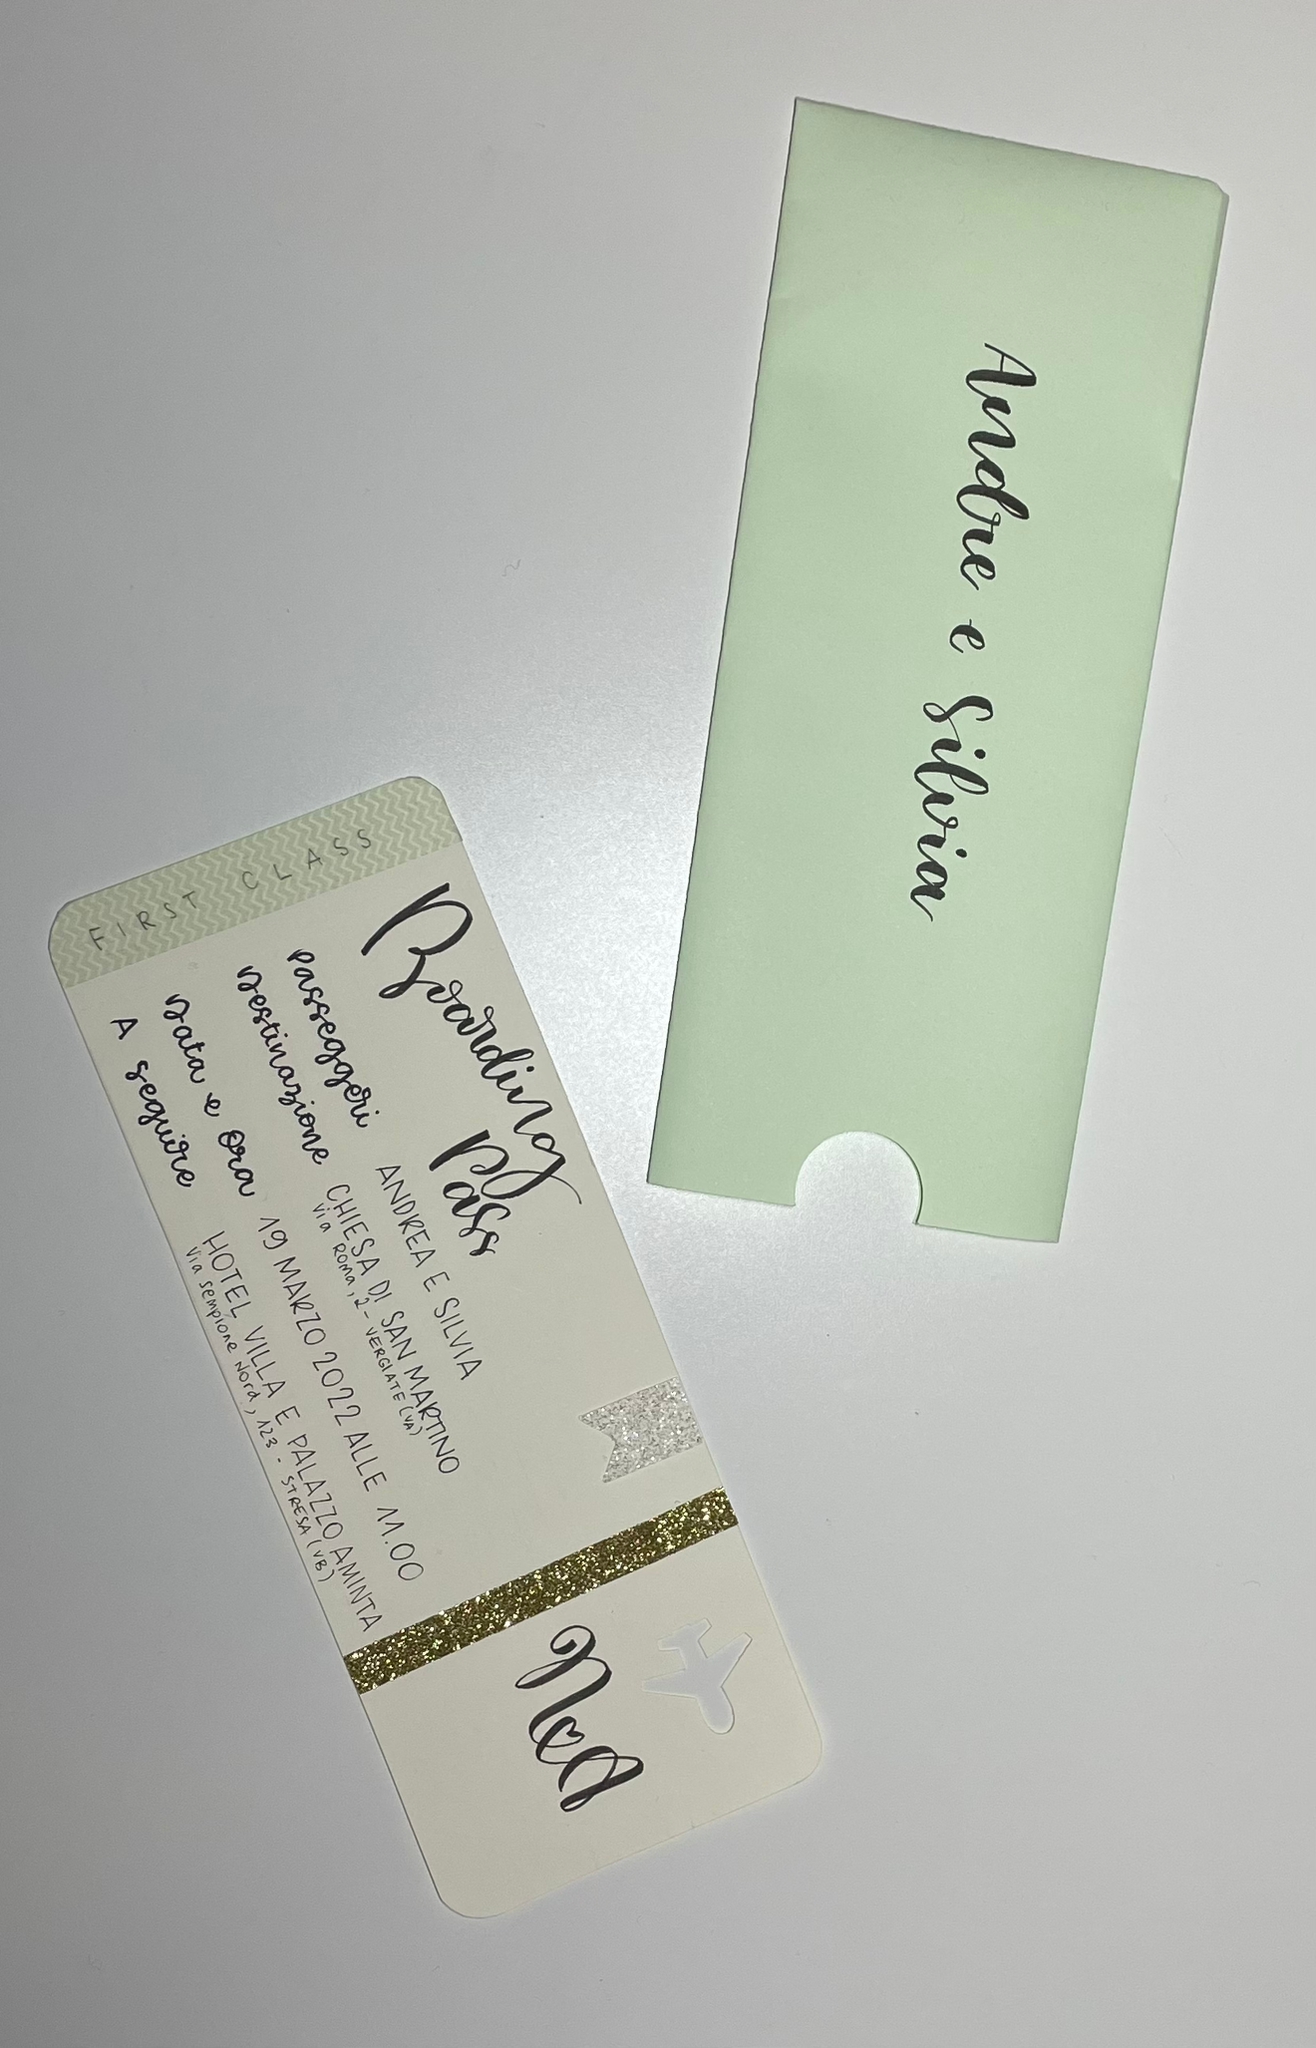 Andre e Silvia
FIRST CLASS
Boarding
Pass
Passeggeri ANDREA E SILVIA
Destinazione CHIESA DI SAN MARTINO
Via Roma, 2 - VERGIATE (VA)
Data e Ora 19 MARZO 2022 ALLE 11.00
A seguire HOTEL VILLA E PALAZZO AMINTA
Via Sempione Nord, 123 - STRESA (VB)